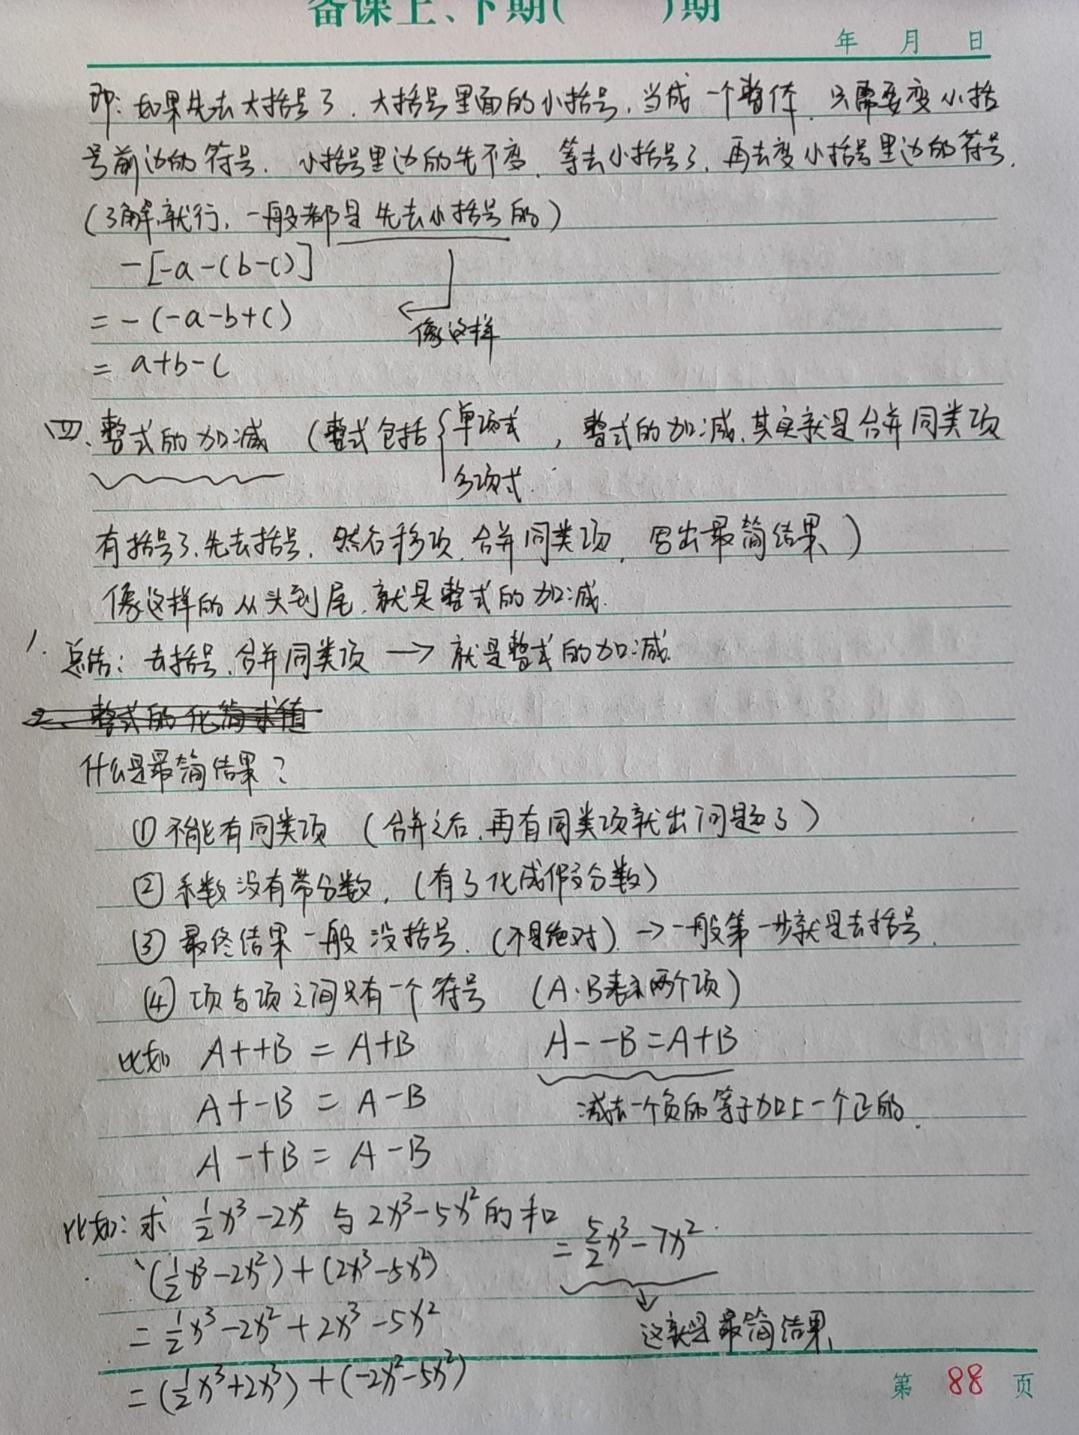 备课上、下期(　　)期
年　月　日
即：如果先去大括号了，大括号里面的小括号，当成一个整体，只需要变小括
号前边的符号，小括号里边的先不变，等去小括号了，再去变小括号里边的符号．
（了解就行，一般都是先去小括号的）
-[-a-(b-c)]
= -(-a-b+c)
像这样
= a+b-c
四、整式的加减（整式包括{单项式，整式的加减，其实就是合并同类项
多项式．
有括号了，先去括号，然后移项，合并同类项，写出最简结果）
像这样的从头到尾，就是整式的加减．
1. 总结：去括号，合并同类项 → 就是整式的加减．
2、整式的化简求值
什么是最简结果？
① 不能有同类项（合并之后，再有同类项就出问题了）
② 系数没有带分数，（有了化成假分数）
③ 最终结果一般没括号．（不是绝对）→ 一般第一步就是去括号．
④ 项与项之间只有一个符号（A、B表示两个项）
比如 A++B = A+B　A--B=A+B
A+-B = A-B　减去一个负的等于加上一个正的．
A-+B = A-B
比如：求 ½x³-2x² 与 2x³-5x² 的和
(½x³-2x²)+(2x³-5x²)
= ½x³-2x²+2x³-5x²
= (½x³+2x³)+(-2x²-5x²)
= 5/2x³-7x².
这就是最简结果．
第 88 页